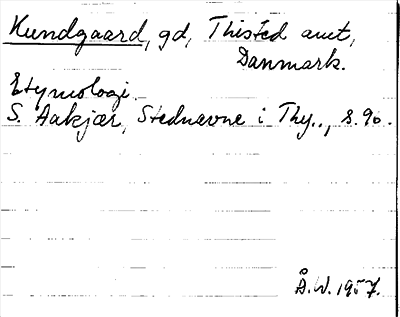 Kundgaard, gd, Thisted amt,
Danmark.
Etymologi.
S. Aakjær, Stednavne i Thy.., s. 90.
Å.W. 1957.